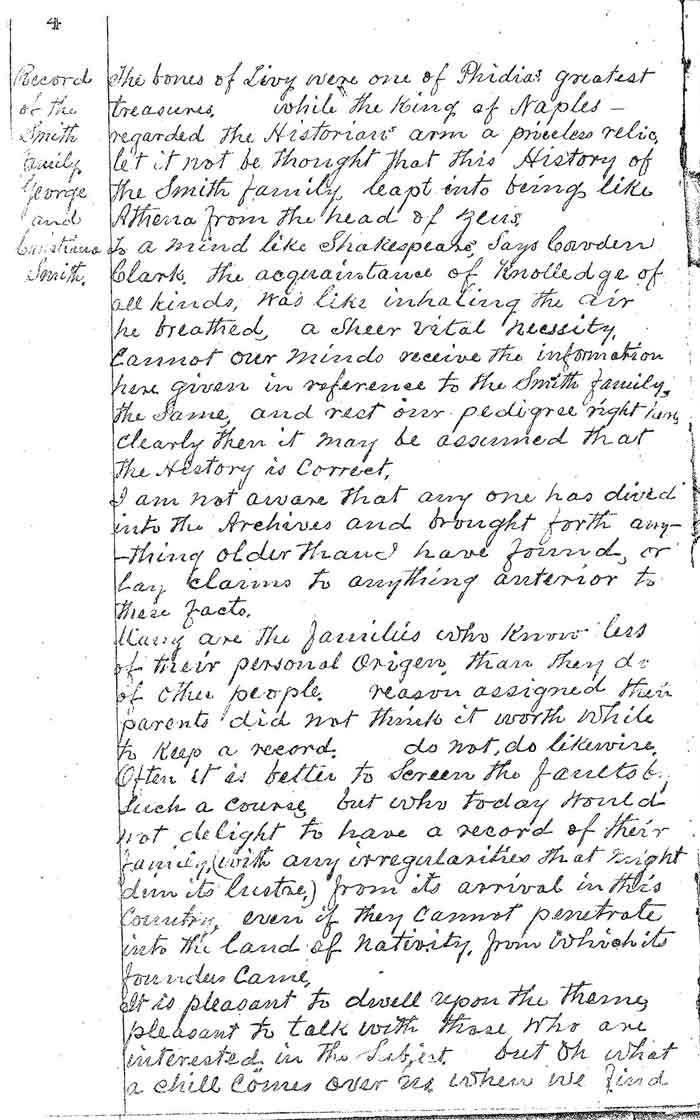 4
Record
of the
Smith
family,
George
and
Christiana
Smith.
The bones of Livy were one of Phidias greatest
treasures. while the King of Naples –
regarded the Historians arm a priceless relic,
let it not be thought that this History of
the Smith family leapt into being like
Athena from the head of Zeus.
to a mind like Shakespears, Says Cowden
Clark. the acquaintance of Knolledge of
all kinds, was like inhaling the air
he breathed, a Sheer vital necssity,
Cannot our minds receive the information
here given in reference to the Smith family,
the Same, and rest our pedigree right here,
Clearly then it may be assumed that
the History is Correct,
I am not aware that any one has dived
into the Archives and brought forth any-
-thing older than I have found, or
Lay Claims to anything anterior to
these facts.
Many are the families who Know less
of their personal Origen, than they do
of other people. reason assigned their
parents did not think it worth while
to Keep a record. do not, do likewise.
Often it is better to Screen the faults by
Such a course, but who today would
not delight to have a record of their
family, (with any irregularities that might
dim its lustre,) from its arrival in this
Country, even if they Cannot penetrate
into the land of nativity, from which its
founders Came,
It is pleasant to dwell upon the theme,
pleasant to talk with those who are
interested in the Subject but Oh what
a chill Comes over us when we find